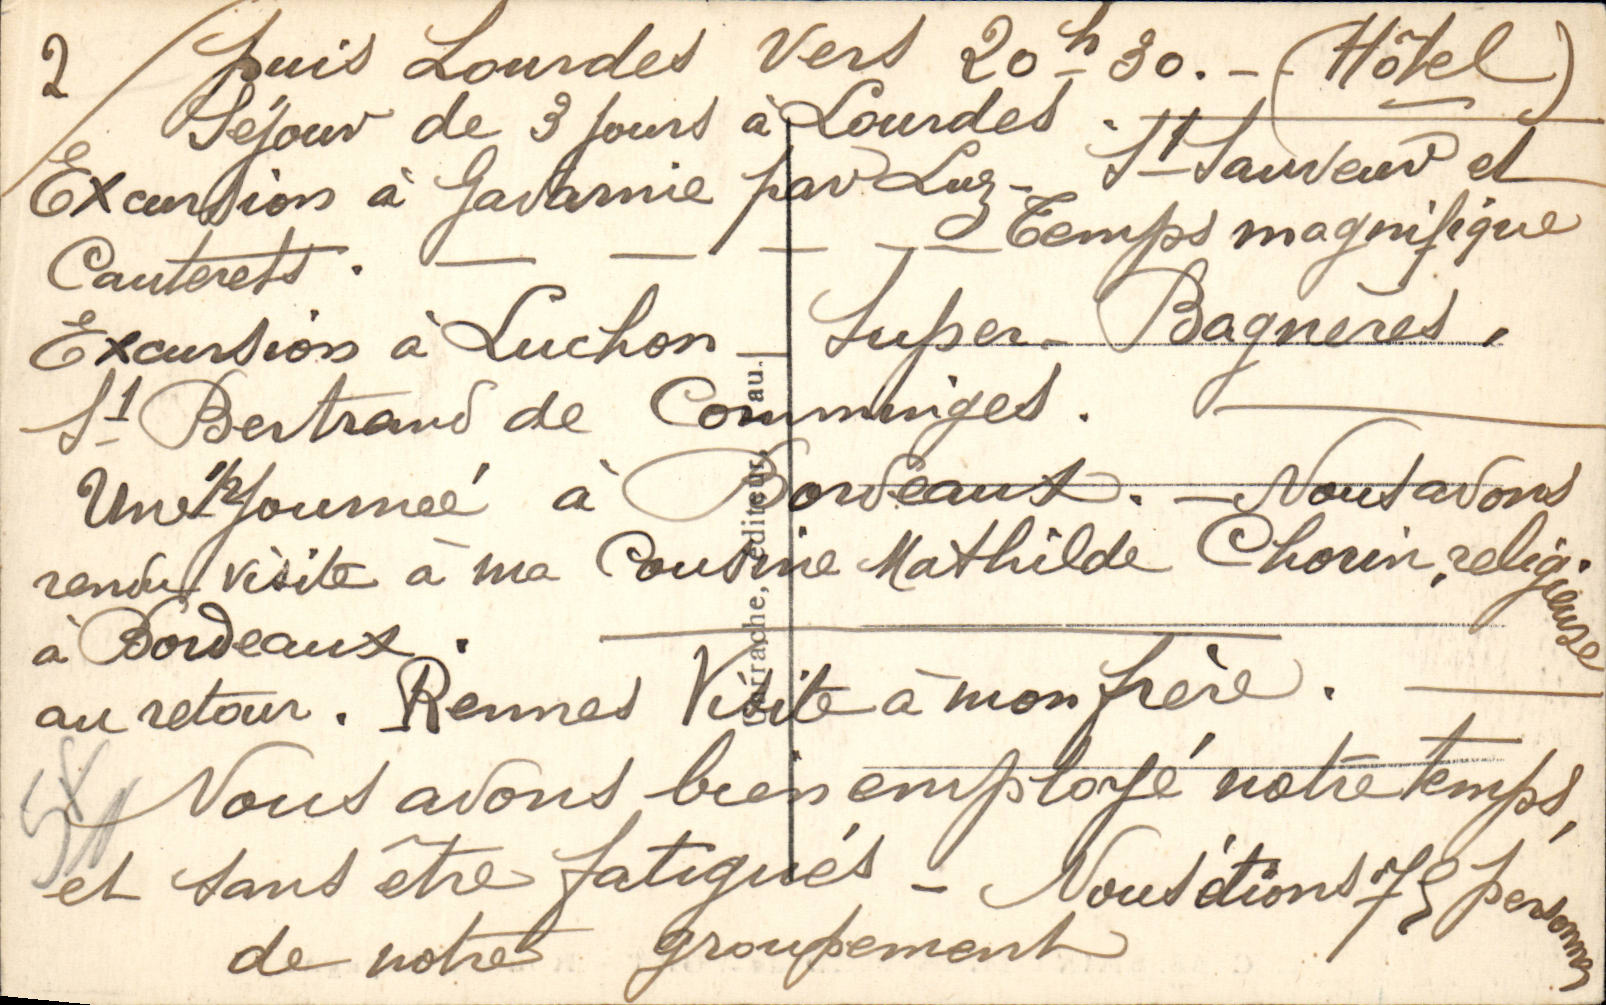 2 / puis Lourdes vers 20h30. - (Hôtel)
Séjour de 3 jours à Lourdes.
Excursion à Gavarnie par Luz - St Sauveur et
Cauterets. — — — — — Temps magnifique
Excursion à Luchon - Super-Bagnères.
St Bertrand de Comminges.
Une 1/2 Journeé à Bordeaux. - Nous avons
rendu visite à ma Cousine Mathilde Chorin, religieuse
à Bordeaux.
au retour. Rennes Visite à mon frère.
Nous avons bien employé notre temps,
et sans être fatigués - Nous étions personnes
de notre groupement
éditeur, au.